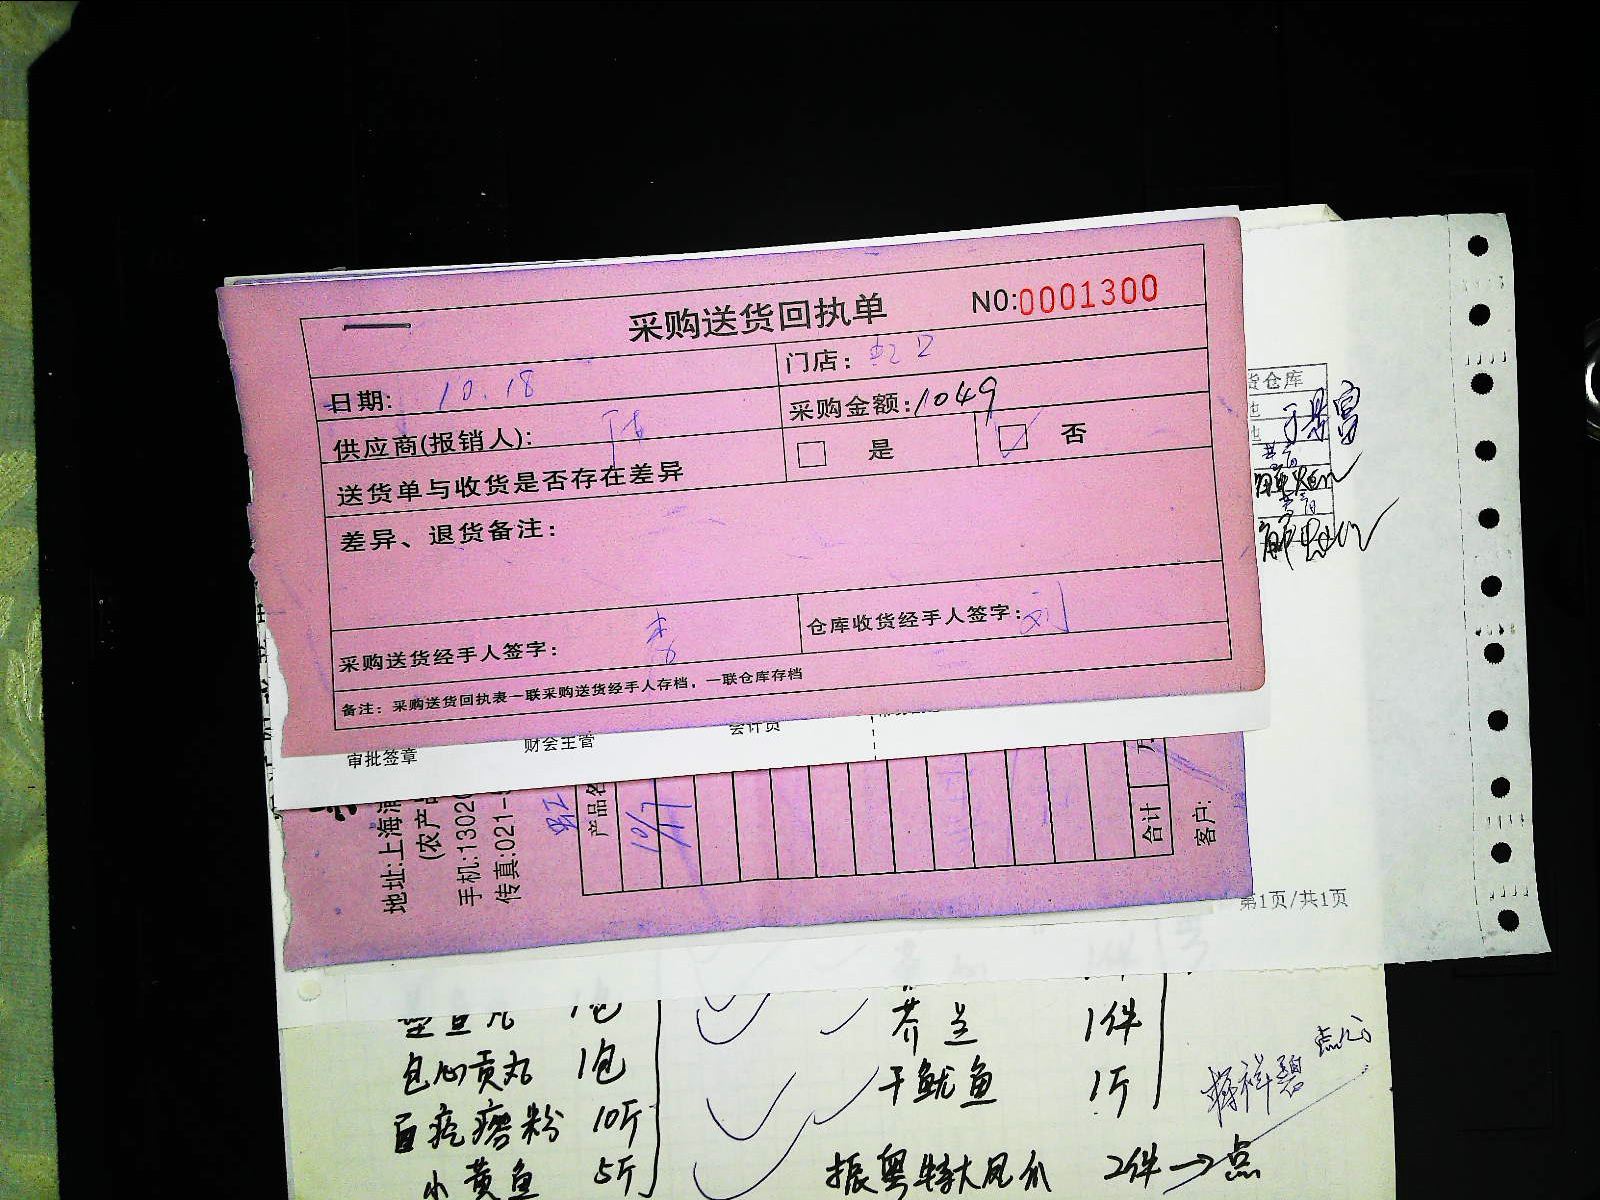 采购送货回执单 NO:0001300
日期: 10.18 门店: 虹口
供应商(报销人): 采购金额: 1049
送货单与收货是否存在差异 是 否
差异、退货备注:
采购送货经手人签字: 李 仓库收货经手人签字: 刘
备注: 采购送货回执表一联采购送货经手人存档，一联仓库存档
货仓库
审批签章 财会主管 会计员
地址:上海浦
(农产
手机:1302
传真:021-
虹
产品名
10/7
合计
客户:
第1页/共1页
鱼丸 1包
芥兰 1件
包心贡丸 1包
干鱿鱼 1斤
10斤
小黄鱼 5斤
振粤特大凤爪 2件→点
点心